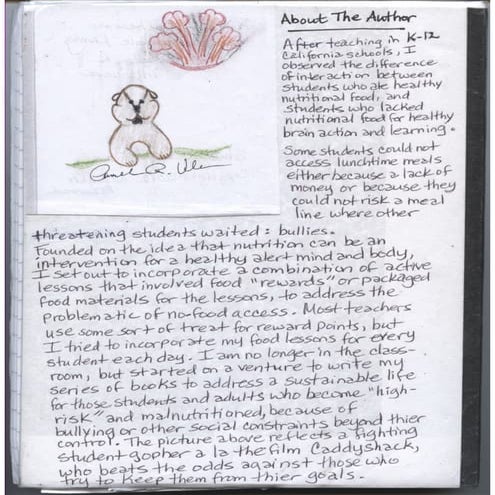 About The Author
After teaching in K-12
California schools, I
observed the difference
of interaction between
students who ate healthy
nutritional food, and
students who lacked
nutritional food for healthy
brain action and learning.
Some students could not
access lunchtime meals
either because a lack of
money or because they
could not risk a meal
line where other
threatening students waited: bullies.
Founded on the idea that nutrition can be an
intervention for a healthy alert mind and body,
I set out to incorporate a combination of active
lessons that involved food "rewards" or packaged
food materials for the lessons, to address the
problematic of no-food access. Most teachers
use some sort of treat for reward points, but
I tried to incorporate my food lessons for every
student each day. I am no longer in the class-
room, but started on a venture to write my
series of books to address a sustainable life
for those students and adults who become "high-
risk" and malnutritioned, because of
bullying or other social constraints beyond thier
control. The picture above reflects a fighting
student gopher a la the film Caddyshack,
who beats the odds against those who
try to keep them from thier goals.